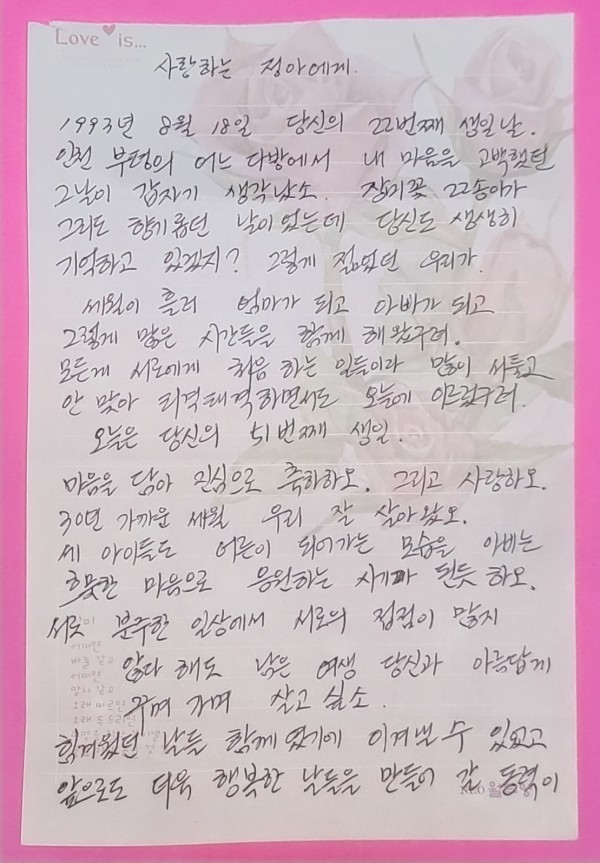 Love is...
사랑하는 정아에게.
1993년 8월 18일 당신의 22번째 생일날.
인천 부평의 어느 다방에서 내 마음을 고백했던
그날이 갑자기 생각났소. 장미꽃 22송이가
그리도 향기롭던 날이었는데 당신도 생생히
기억하고 있겠지? 그렇게 젊었던 우리가.
세월이 흘러 엄마가 되고 아빠가 되고
그렇게 많은 시간들을 함께 해왔구려.
모든게 서로에게 처음 하는 일들이라 많이 서툴고
안 맞아 티격태격하면서도 오늘에 이르렀구려.
오늘은 당신의 51번째 생일.
마음을 담아 진심으로 축하하오. 그리고 사랑하오.
30년 가까운 세월 우리 잘 살아왔오.
세 아이들도 어른이 되어가는 모습을 아비는
흐뭇한 마음으로 응원하는 시기가 된듯 하오.
서로 분주한 일상에서 서로의 접점이 많지
않다 해도 남은 여생 당신과 아름답게
꾸며 가며 살고 싶소.
힘겨웠던 날들 함께 였기에 이겨낼 수 있었고
앞으로도 더욱 행복한 날들을 만들어 갈 동력이